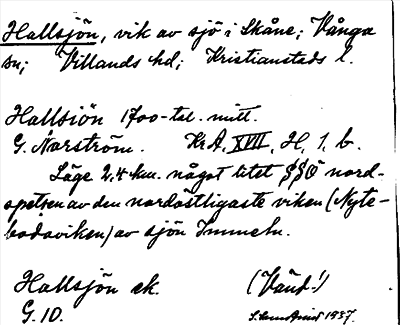 Hallsjön, vik av sjö i Skåne; Vånga
sn; Villands hd; Kristianstads l.
Hallsiön 1700-tal. mitt.
G. Norström. KrA, XVII, H, 1, b.
Läge 2,4 km. något litet §§Ö nord-
spetsen av den nordöstligaste viken (Nyte-
bodaviken) av sjön Immeln.
Hallsjön ek. (Vänd!)
G. 10. 1937.